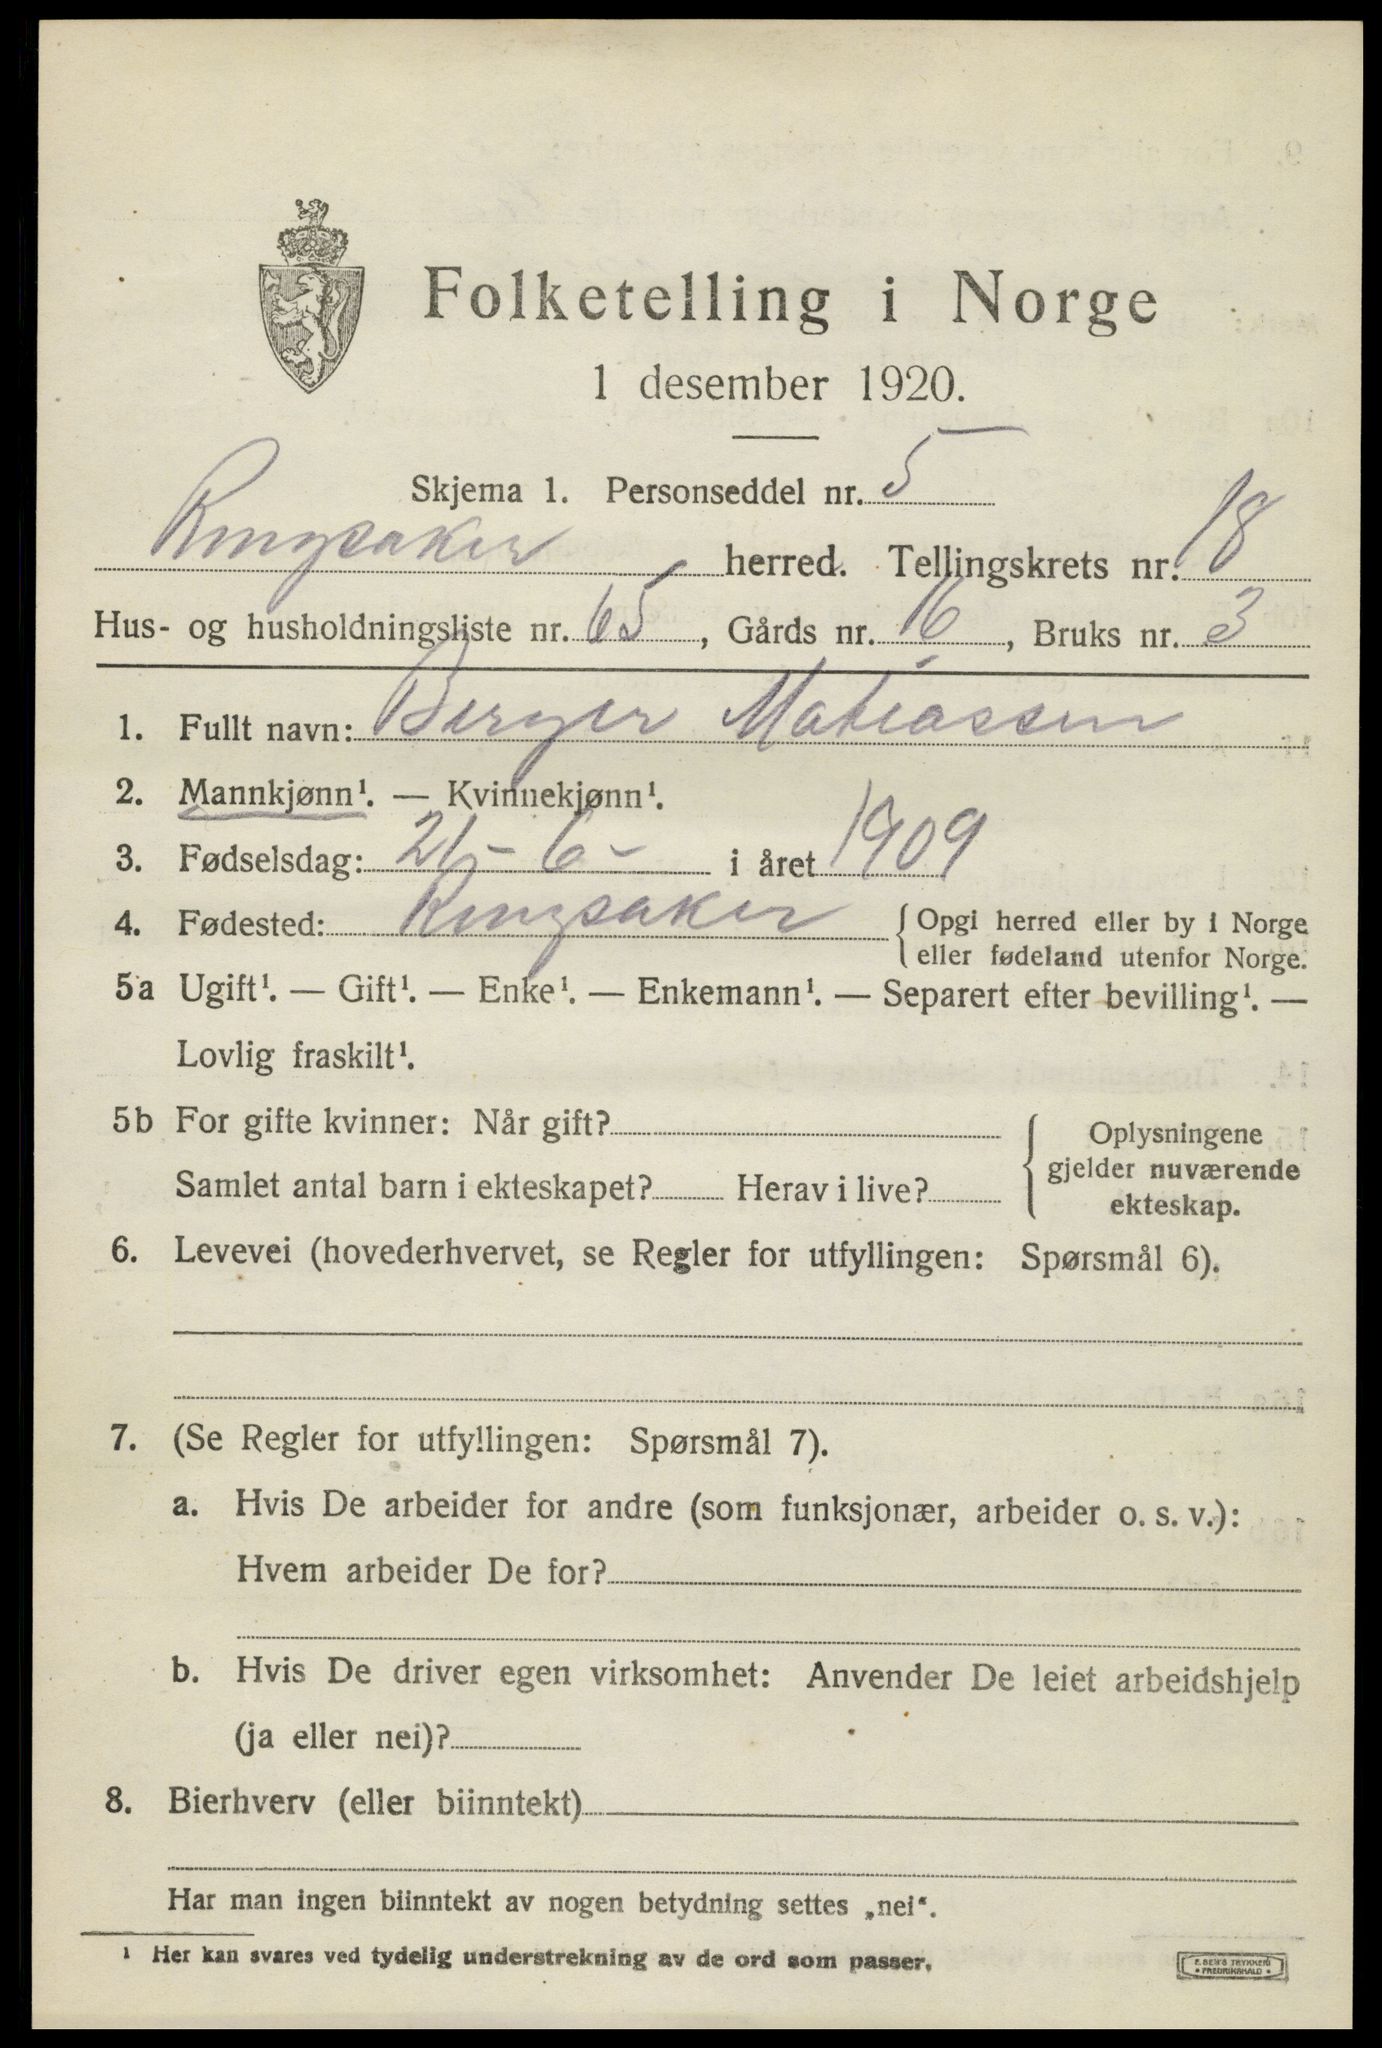 Folketelling i Norge
1 desember 1920.
Skjema 1. Personseddel nr. 5
Ringsaker herred. Tellingskrets nr. 18
Hus- og husholdningsliste nr. 65, Gårds nr. 16, Bruks nr. 3
1. Fullt navn: Birger Matiassen
2. Mannkjønn¹. — Kvinnekjønn¹.
3. Fødselsdag: 21 - 6 - i året 1909
4. Fødested: Ringsaker { Opgi herred eller by i Norge
eller fødeland utenfor Norge.
5a Ugift¹. — Gift¹. — Enke¹. — Enkemann¹. — Separert efter bevilling¹. —
Lovlig fraskilt¹.
5b For gifte kvinner: Når gift?
Samlet antal barn i ekteskapet? Herav i live?
{ Oplysningene
gjelder nuværende
ekteskap.
6. Levevei (hovederhvervet, se Regler for utfyllingen: Spørsmål 6).
7. (Se Regler for utfyllingen: Spørsmål 7).
a. Hvis De arbeider for andre (som funksjonær, arbeider o. s. v.):
Hvem arbeider De for?
b. Hvis De driver egen virksomhet: Anvender De leiet arbeidshjelp
(ja eller nei)?
8. Bierhverv (eller biinntekt)
Har man ingen biinntekt av nogen betydning settes „nei“.
¹ Her kan svares ved tydelig understrekning av de ord som passer.
E. SEM'S TRYKKERI
• FREDRIKSHALD •